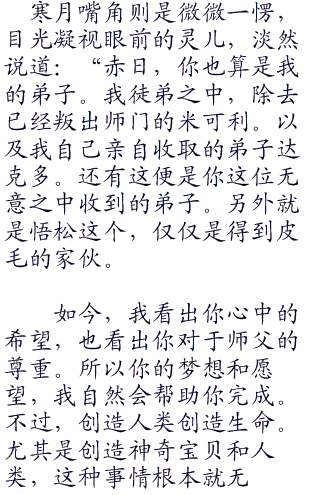 寒月嘴角则是微微一愣，
目光凝视眼前的灵儿，淡然
说道：“赤日，你也算是我
的弟子。我徒弟之中，除去
已经叛出师门的米可利。以
及我自己亲自收取的弟子达
克多。还有这便是你这位无
意之中收到的弟子。另外就
是悟松这个，仅仅是得到皮
毛的家伙。
如今，我看出你心中的
希望，也看出你对于师父的
尊重。所以你的梦想和愿
望，我自然会帮助你完成。
不过，创造人类创造生命。
尤其是创造神奇宝贝和人
类，这种事情根本就无